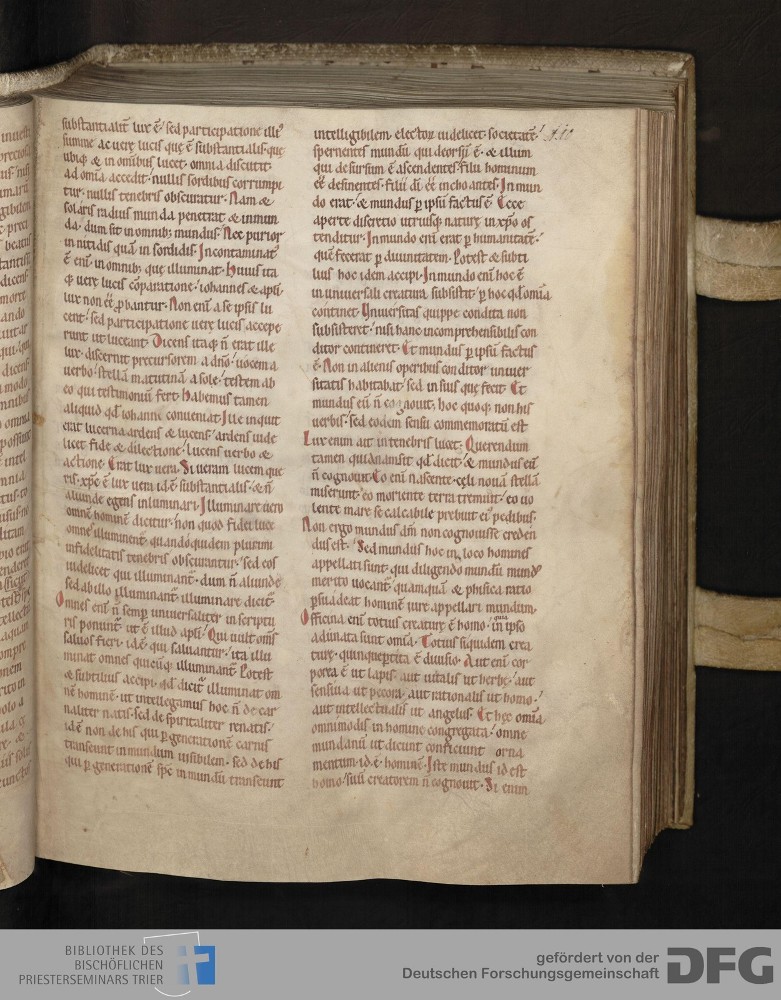 substantialit̄ lux ē. sed participatione illi᷒
summe ac uerę lucis quę ē substantialis. quę
ubiq; & in omnibus lucet. omnia discutit.
ad omnia accedit. nullis sordibus corrumpi
tur. nullis tenebris obscuratur. Nam &
solaris radius munda penetrat & inmun
da. dum sit in omnib; mundus. Nec purior
in nitidis quā in sordidis. Incontaminat᷒
ē enī in omnib; quę illuminat. Huius ita
q; uerę lucis cōparatione. iohannes & apli.
lux non eē ꝓbantur. Non enī a se ipsis lu
cent. sed participatione uerę lucis accepe
runt ut luceant. Dicens itaq; n̄ erat ille
lux. discernit precursorem a dn̄o. uocem a
uerbo. stellā matutinā a sole. testem ab
eo qui testimoniū fert. Habemus tamen
aliquid qd̄ iohanni conueniat. Ille inquit
erat lucerna ardens & lucens. ardens uide
licet fide & dilectione. lucens uerbo &
actione. Erat lux uera. Si ueram lucem que
ris. xp̄c ē lux uera idē substantialis. & n̄
aliunde egens inluminari. Illuminare uero
omnē hominē dicitur. non quod fidei luce
omnes illuminent. quandoquidem plurimi
infidelitatis tenebris obscurantur. sed eos
uidelicet qui illuminant̄. dum n̄ aliunde
sed ab illo illuminant̄. illuminare dicit̄.
Omnes enī n̄ semꝑ uniuersaliter in scriptu
ris ponunt̄. ut ē illud apli. Qui uult om̄s
saluos fieri. idē qui saluantur. ita illu
minat omnes quicūq; illuminant̄. Potest
& subtilius accipi. qd̄ dicit̄ illuminat om
nē hominē. ut intellegamus hoc n̄ de car
naliter natis. sed de spiritaliter renatis.
idē non de his qui ꝑ generationē carnis
transeunt in mundum uisibilem. sed de his
qui ꝑ generationē sp̄c in mundū transeunt
intelligibilem electoꝝ uidelicet societatē.
spernentes mundū qui deorsū ē. & illum
qui desursum ē ascendentes. filii hominum
eē desinentes. filii dī eē inchoantes. In mun
do erat. & mundus ꝑ ipsū factus ē. Ecce
aperte discretio utriusq; naturę in xp̄o os
tenditur. In mundo enī erat ꝑ humanitatē.
quē fecerat ꝑ diuinitatem. Potest & subti
lius hoc idem accipi. In mundo enī hoc ē
in uniuersali creatura subsistit. ꝑ hoc qd̄ omīa
continet. Vniuersitas quippe condita non
subsisteret. nisi hanc incomprehensibilis con
ditor contineret. Et mundus ꝑ ipsū factus
ē. Non in alienis operibus conditor uniuer
sitatis habitabat. sed in suis quę fecit. Et
mundus eū n̄ cognouit. hoc quoq; non his
uerbis. sed eodem sensu commemoratū est
Lux enim ait in tenebris lucet. Querendum
tamen quid manifestet qd̄ dicit. & mundus eū
n̄ cognouit. Eo enī nascente. cęli noua stellā
miserunt. eo moriente terra tremuit. eo uo
lente mare se calcabile prebuit ei᷒ pedibus.
Non ergo mundus dm̄ non cognouisse creden
dus est. Sed mundus hoc in loco homines
appellati sunt. qui diligendo mundū mund᷒
merito uocant̄. quamquā & phisica ratio
ꝑsuadeat hominē iure appellari mundum.
Officina enī totius creaturę ē homo. quia in ipso
adunata sunt omīa. Totius siquidem crea
turę. quinquepertita ē diuisio. Aut enī cor
porea ē ut lapis. aut uitalis ut herbę. aut
sensiua ut pecora. aut rationalis ut homo.
aut intellectualis ut angelus. Et hęc omīa
omnimodis in homine congregata. omne
mundanū ut dicunt conficiunt orna
mentum. id ē. hominē. Iste mundus id est
homo. suū creatorem n̄ cognouit. Si enim
BIBLIOTHEK DES
BISCHÖFLICHEN
PRIESTERSEMINARS TRIER
gefördert von der
Deutschen Forschungsgemeinschaft
DFG